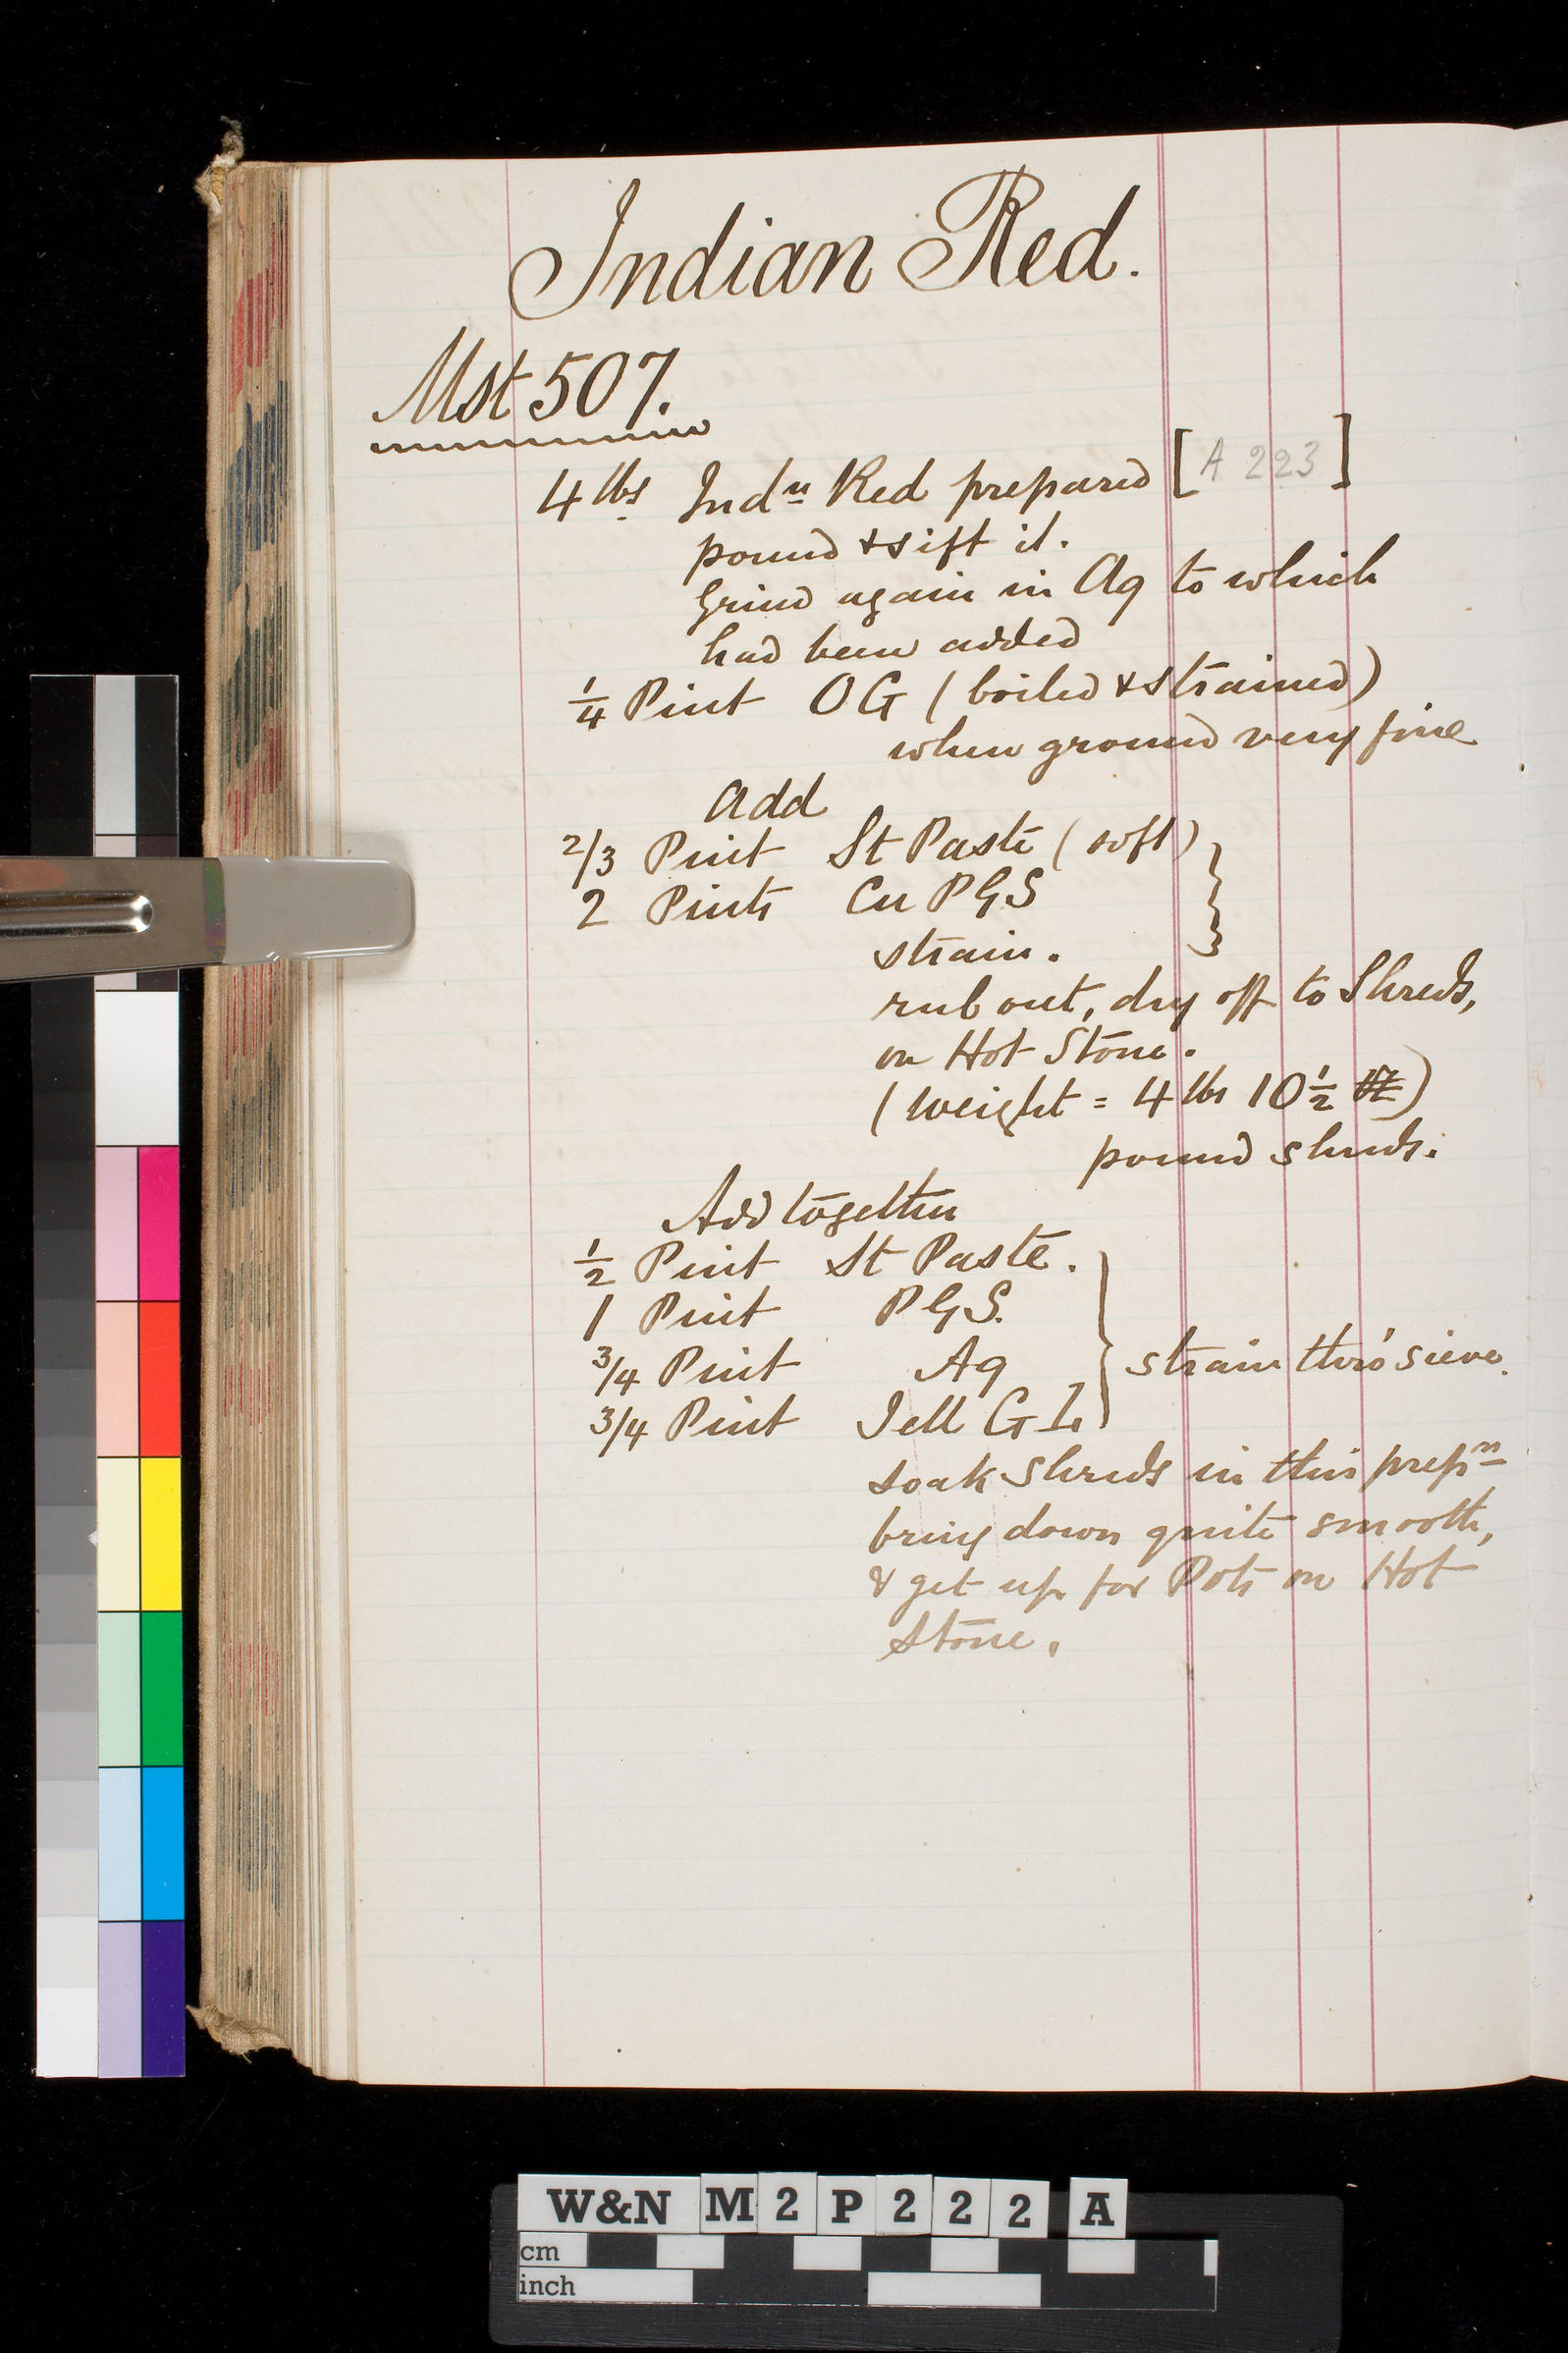 Indian Red.
Mst 507.
4 lbs Indn Red prepared [A 223]
pound & sift it.
Grind again in Aq to which
had been added
1/4 Pint OG (boiled & strained)
when ground very fine
Add
2/3 Pint St Paste (soft)
2 Pints Cu PGS
strain.
rub out, dry off to Shreds,
on Hot Stone.
(Weight = 4 lbs 10 1/2
pound shreds.
Add together
1/2 Pint St Paste.
1 Pint PGS.
3/4 Pint Aq
strain thro' sieve.
3/4 Pint Jell G I.
soak shreds in this prepn
bring down quite smooth,
& get up for Pots on Hot
Stone.
W&N M2P222 A
cm
inch